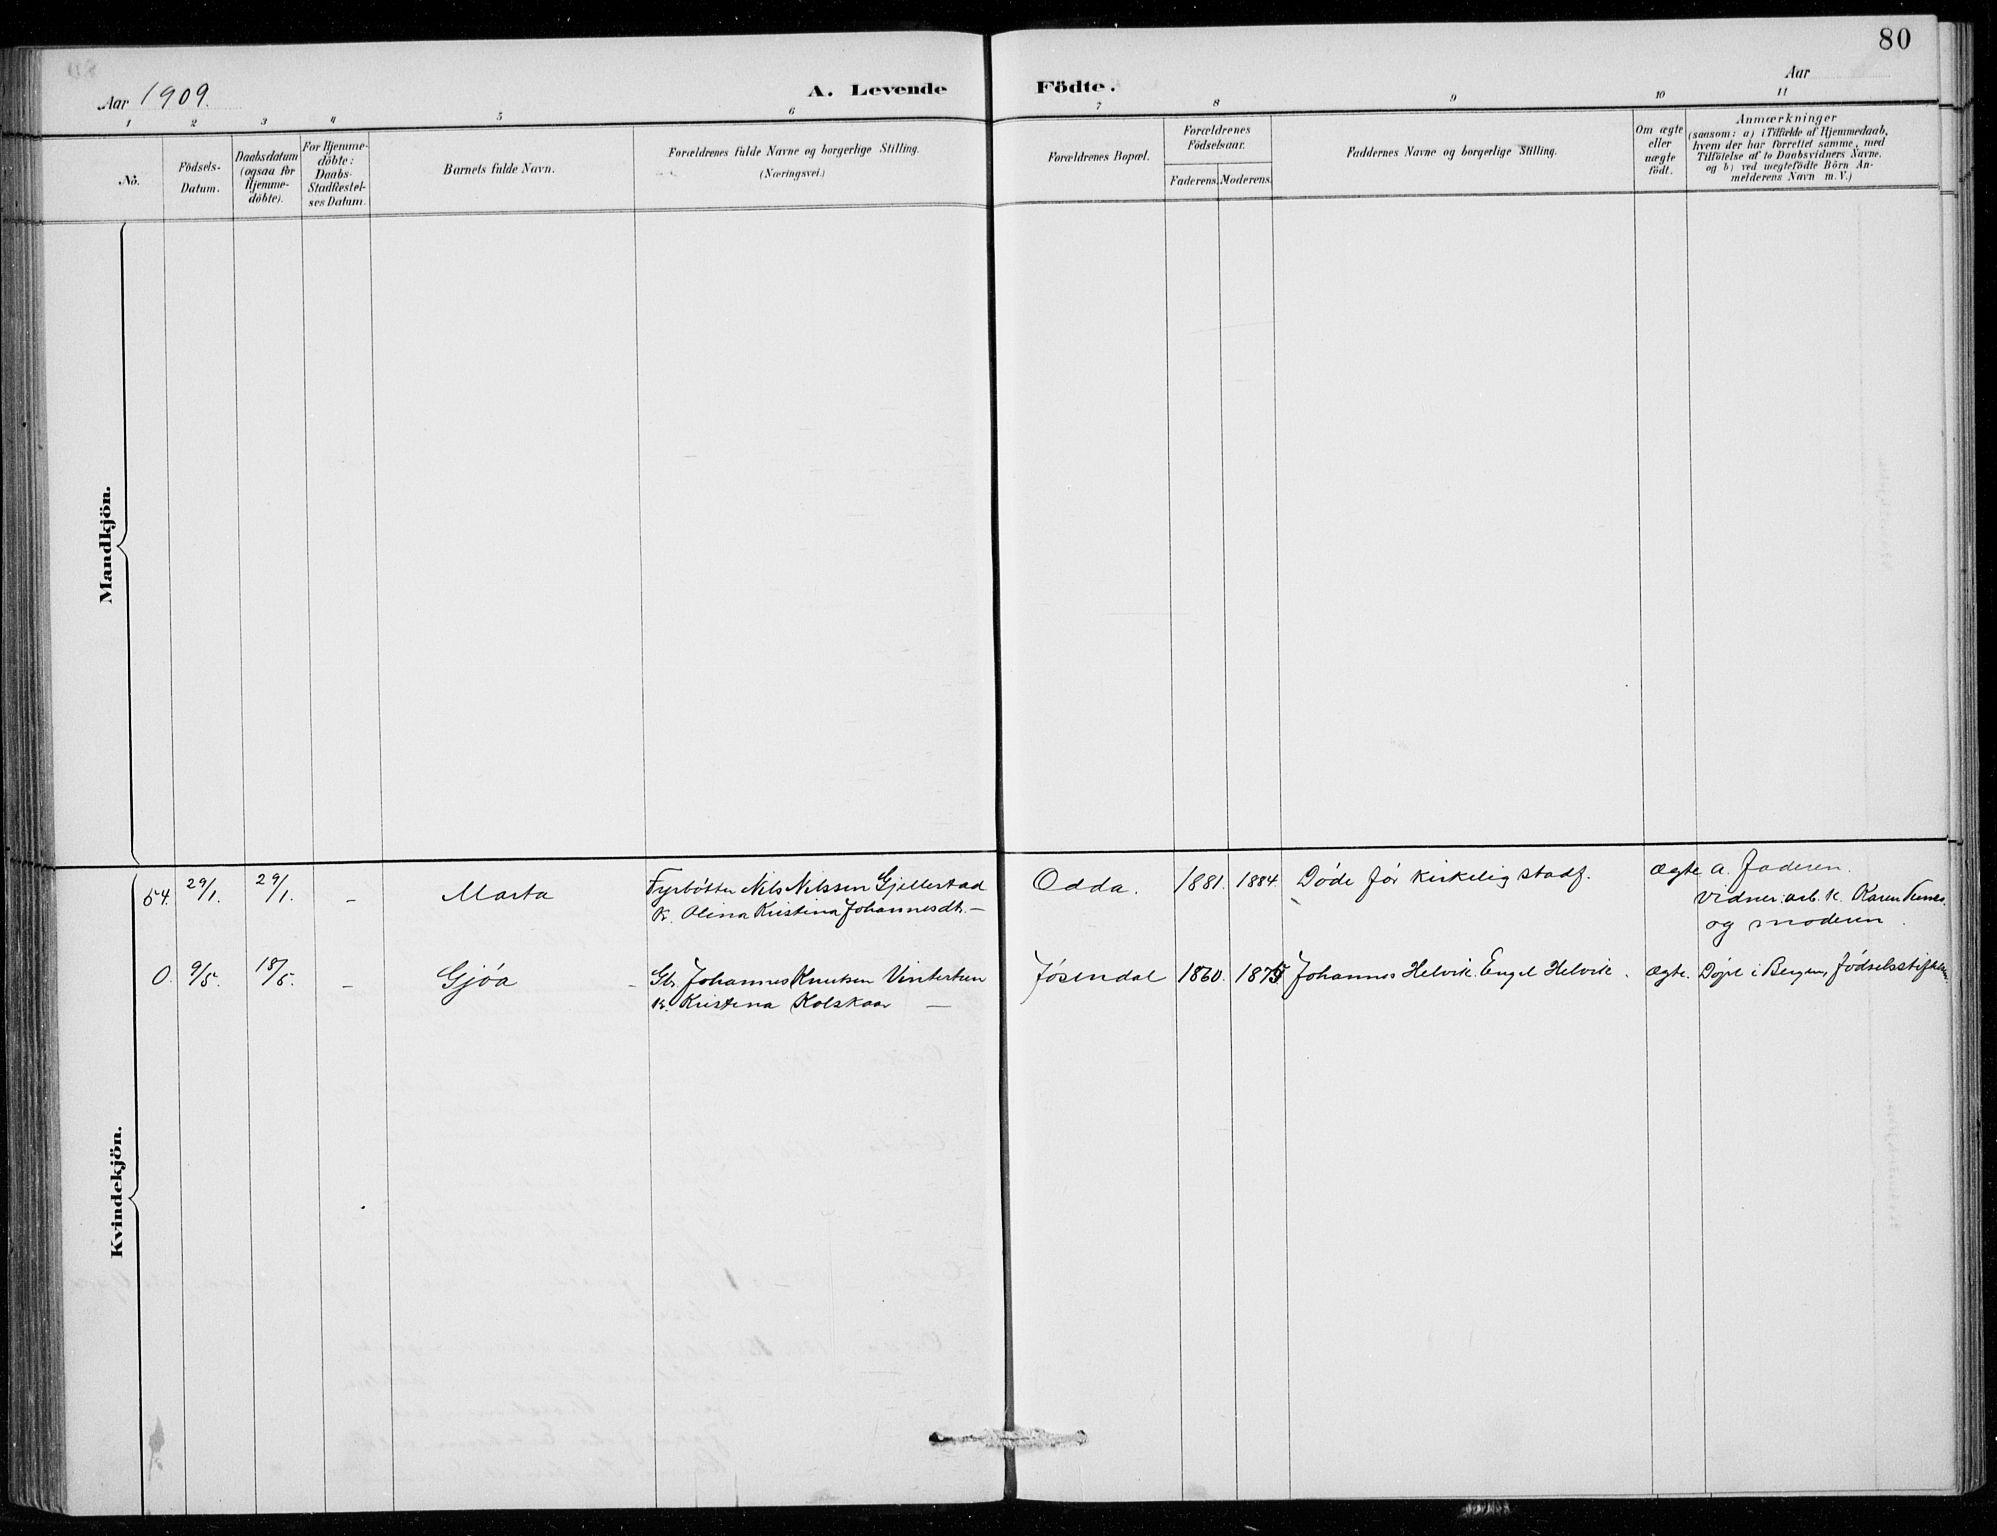 80
Aar 1909.
A. Levende Födte.
Aar
1 2 3 4 5 6 7 8 9 10 11
No.
Födsels-
Datum.
Daabsdatum
(ogsaa for
Hjemme-
döbte).
For Hjemme-
döbte:
Daabs-
Stadfæstel-
ses Datum.
Barnets fulde Navn.
Forældrenes fulde Navne og borgerlige Stilling.
(Næringsvei.)
Forældrenes Bopæl.
Forældrenes
Födselsaar.
Faderens. Moderens.
Faddernes Navne og borgerlige Stilling.
Om ægte
eller
uægte
födt.
Anmærkninger
(saasom: a) i Tilfælde af Hjemmedaab,
hvem der har forrettet samme, med
Tilföielse af to Daabsvidners Navne.
og b) ved uægtefödte Börn An-
melderens Navn m. V.)
Mandkjön.
Kvindekjön.
54. 29/1. 29/1. - Marta
Fyrbøtter Nils Nilssen Gjellestad
K. Olina Kristina Johannesdt. -
Odda. 1881. 1884. Døde før kirkelig stadf. Ægte
a. Faderen.
Vidner: arb. K. Karen
og moderen.
0. 9/5. 18/5. - Gjøa -
Gbr. Johannes Knutsen Vintertun
K. Kristina Kolskaar -
Jøsendal 1860. 1875 Johannes Helvik. Engel Helvik. Ægte. Døpt i Bergens Fødselsstiftelse